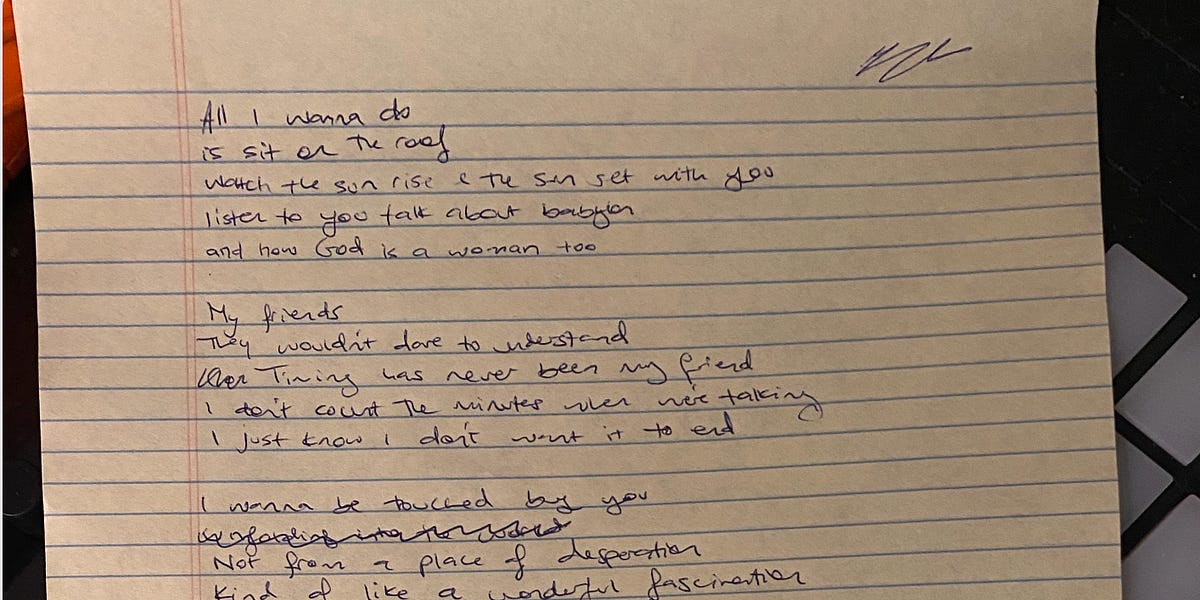 All I wanna do
is sit on the roof
watch the sun rise & the sun set with you
listen to you talk about babylon
and how God is a woman too
My friends
They wouldn't dare to understand
Timing has never been my friend
I don't count the minutes when we're talking
I just know I don't want it to end
I wanna be touched by you
Not from a place of desperation
Kind of like a wonderful fascination